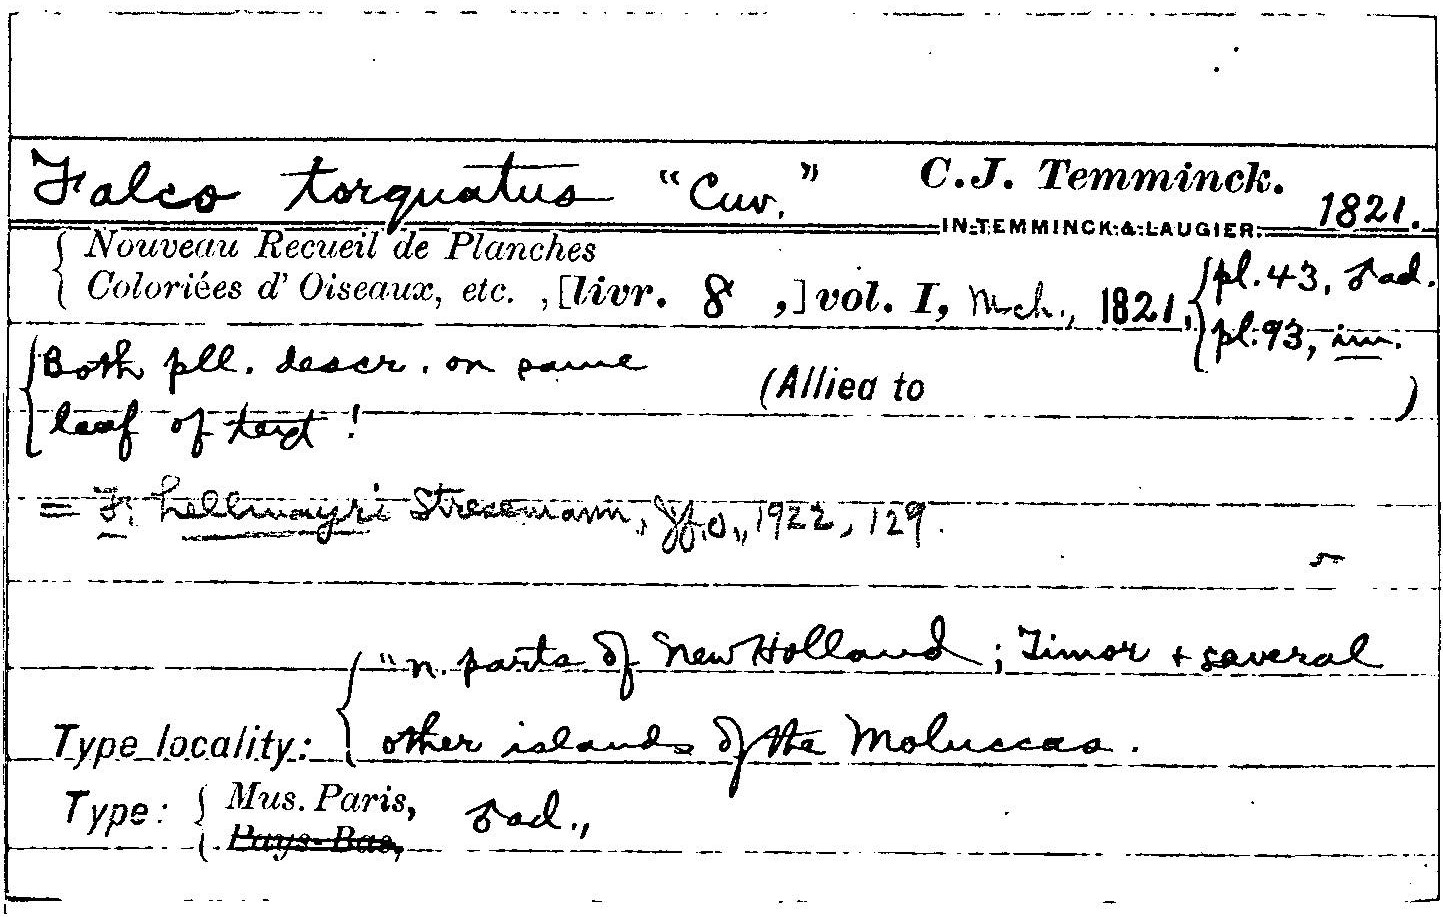 Falco torquatus "Cuv." C.J. Temminck. 1821.
IN TEMMINCK & LAUGIER.
{ Nouveau Recueil de Planches
Coloriées d' Oiseaux, etc. , [livr. 8 ,] vol. I, Mch., 1821, { pl. 43, ♂ ad.
pl. 93, im.
{ Both pll. descr. on same
leaf of text! (Allied to )
= F. hellmayri Stresemann, Jf.O., 1922, 129.
Type locality: { "n. parts of New Holland; Timor + several
other islands of the Moluccas.
Type: { Mus. Paris, ♂ ad.,
Pays-Bas,